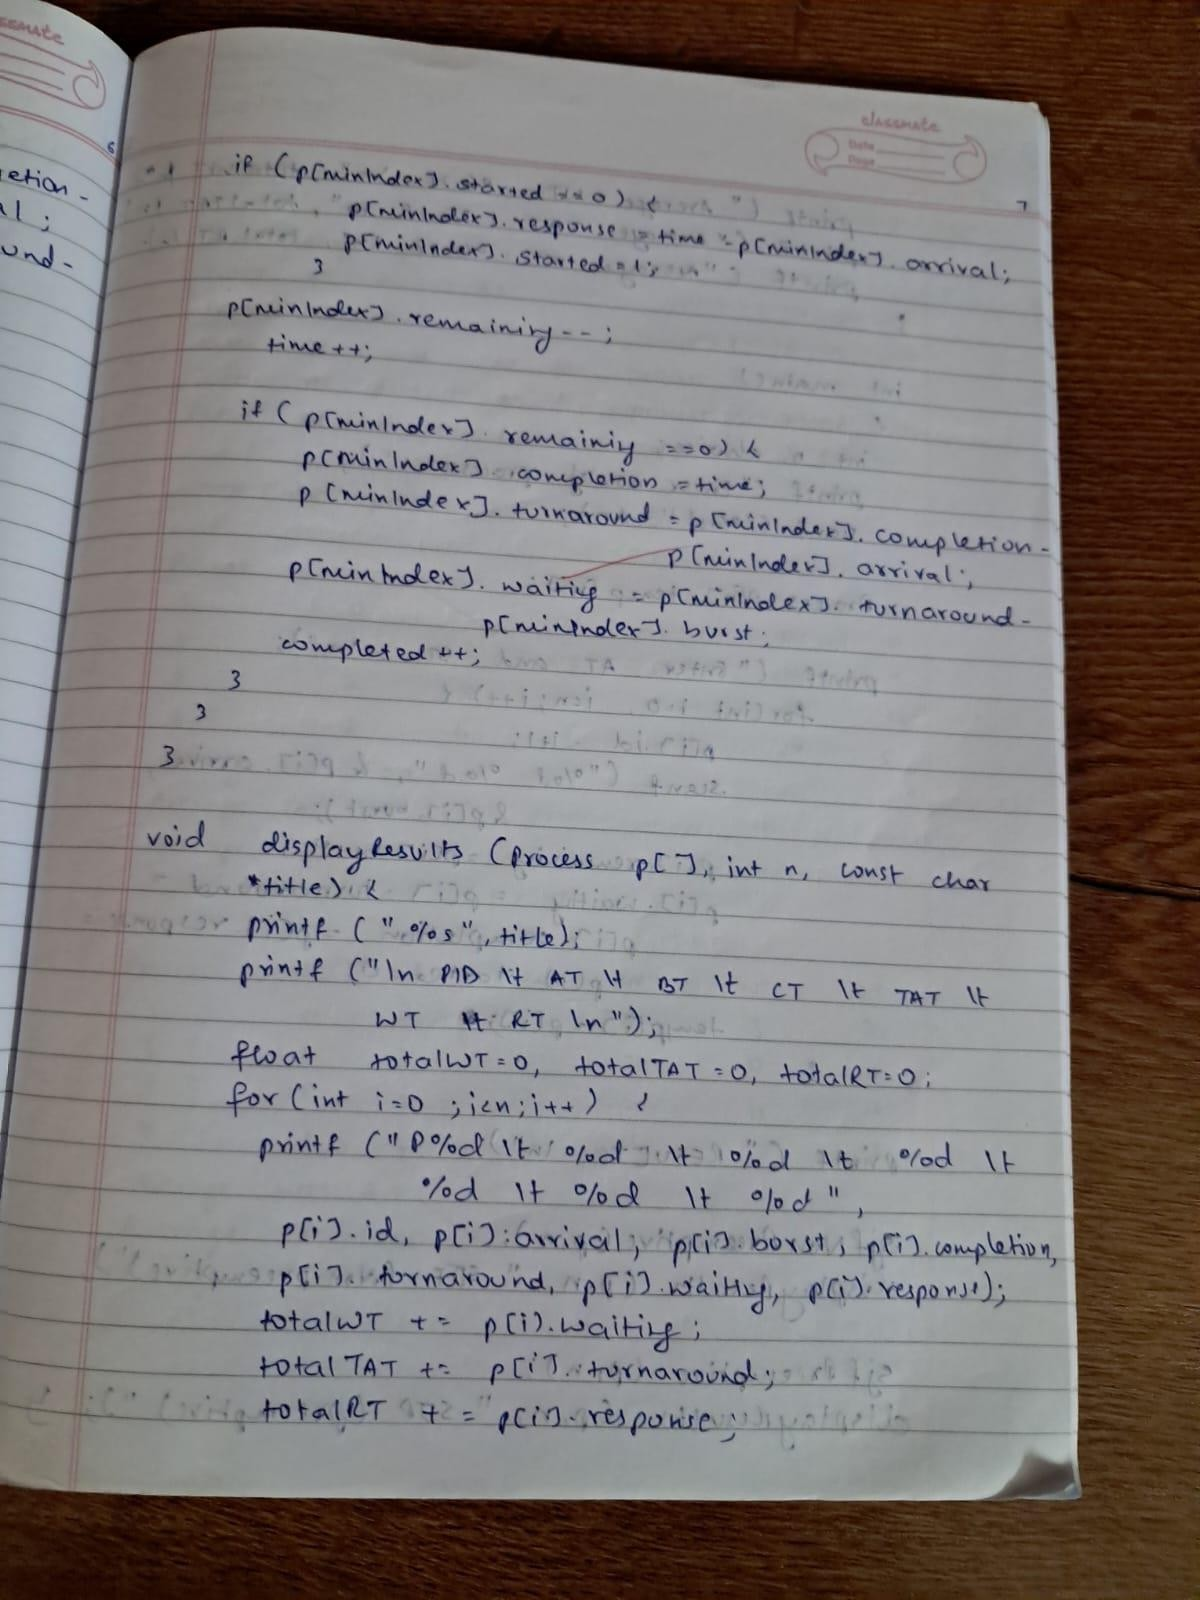 classmate
etion-
al;
ound-
6
classmate
Date
Page
7
if (p[minIndex].started == 0) {
p[minIndex].response = time - p[minIndex].arrival;
p[minIndex].started = 1;
}
p[minIndex].remaining--;
time++;
if (p[minIndex].remaining ==0) {
p[minIndex].completion =time;
p[minIndex].turnaround = p[minIndex].completion-
p[minIndex].arrival;
p[minIndex].waiting = p[minIndex].turnaround-
p[minIndex].burst;
completed++;
}
}
}
void displayResults (Process p[], int n, const char
*title) {
printf ("%s", title);
printf ("\n PID \t AT \t BT \t CT \t TAT \t
WT \t RT \n");
float totalWT=0, totalTAT=0, totalRT=0;
for (int i=0 ;i<n;i++) {
printf ("P%d \t %d \t %d \t %d \t
%d \t %d \t %d",
p[i].id, p[i].arrival, p[i].burst, p[i].completion,
p[i].turnaround, p[i].waiting, p[i].response);
totalWT += p[i].waiting;
totalTAT += p[i].turnaround;
totalRT += p[i].response;